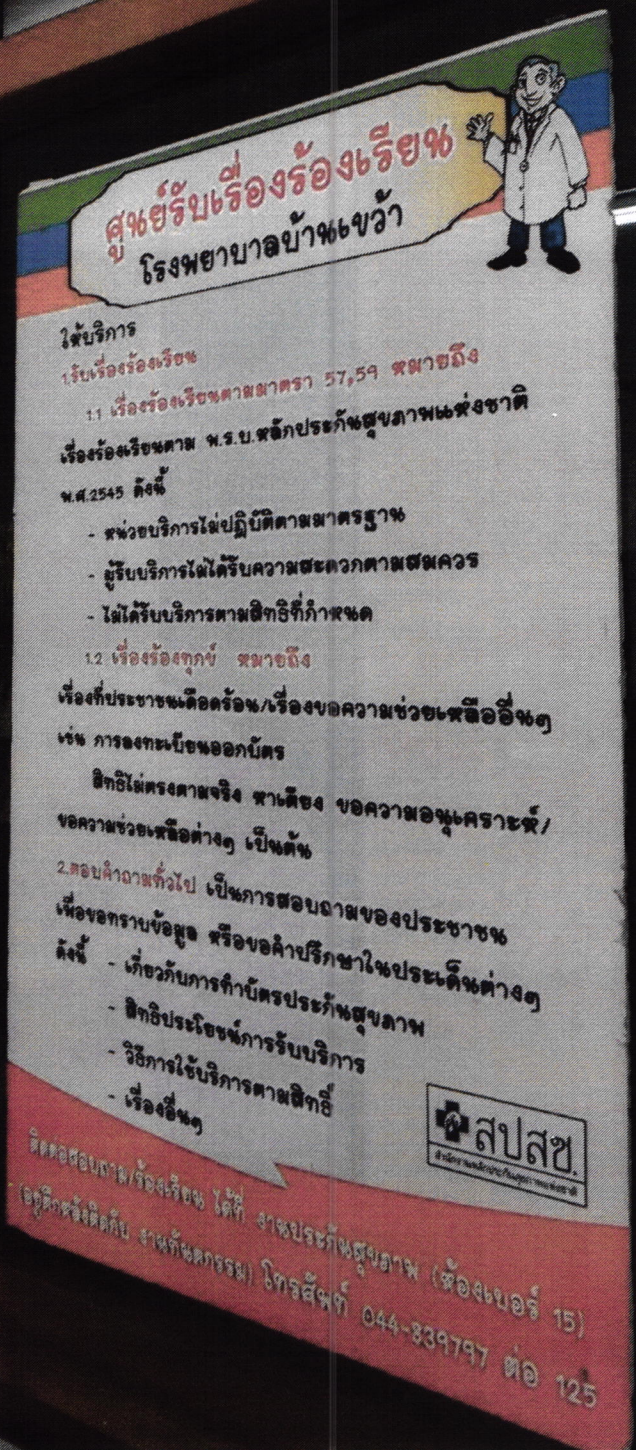 ศูนย์รับเรื่องร้องเรียน
โรงพยาบาลบ้านเขว้า
ให้บริการ
1.รับเรื่องร้องเรียน
1.1 เรื่องร้องเรียนตามมาตรา 57,59 หมายถึง
เรื่องร้องเรียนตาม พ.ร.บ.หลักประกันสุขภาพแห่งชาติ
พ.ศ.2545 ดังนี้
- หน่วยบริการไม่ปฏิบัติตามมาตรฐาน
- ผู้รับบริการไม่ได้รับความสะดวกตามสมควร
- ไม่ได้รับบริการตามสิทธิที่กำหนด
1.2 เรื่องร้องทุกข์ หมายถึง
เรื่องที่ประชาชนเดือดร้อน/เรื่องขอความช่วยเหลืออื่นๆ
เช่น การลงทะเบียนออกบัตร
สิทธิไม่ตรงตามจริง หาเตียง ขอความอนุเคราะห์/
ขอความช่วยเหลือต่างๆ เป็นต้น
2.ตอบคำถามทั่วไป เป็นการสอบถามของประชาชน
เพื่อขอทราบข้อมูล หรือขอคำปรึกษาในประเด็นต่างๆ
ดังนี้ - เกี่ยวกับการทำบัตรประกันสุขภาพ
- สิทธิประโยชน์การรับบริการ
- วิธีการใช้บริการตามสิทธิ์
- เรื่องอื่นๆ
สปสช.
สำนักงานหลักประกันสุขภาพแห่งชาติ
ติดต่อสอบถาม/ร้องเรียน ได้ที่ งานประกันสุขภาพ (ห้องเบอร์ 15)
(อยู่ตึกหลังติดกับ งานทันตกรรม) โทรศัพท์ 044-839797 ต่อ 125